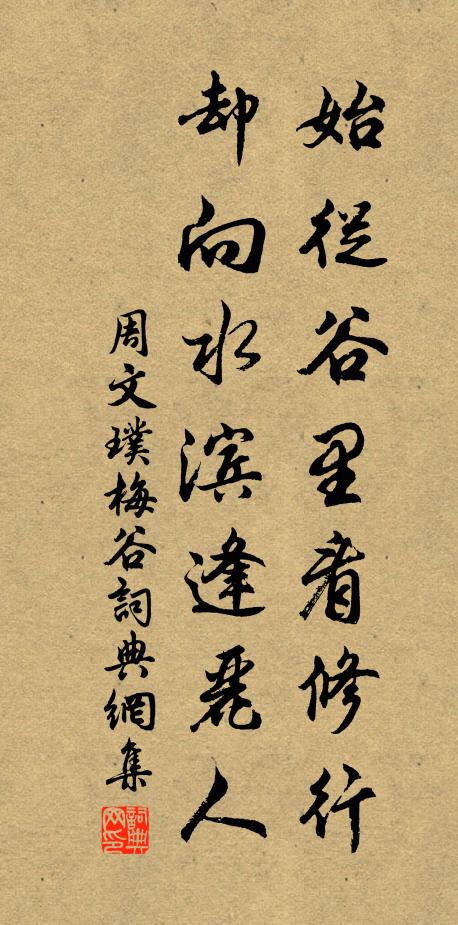 始從谷里看修行
却向水滨逢麗人
周文璞梅谷詞典網集
詞典網印